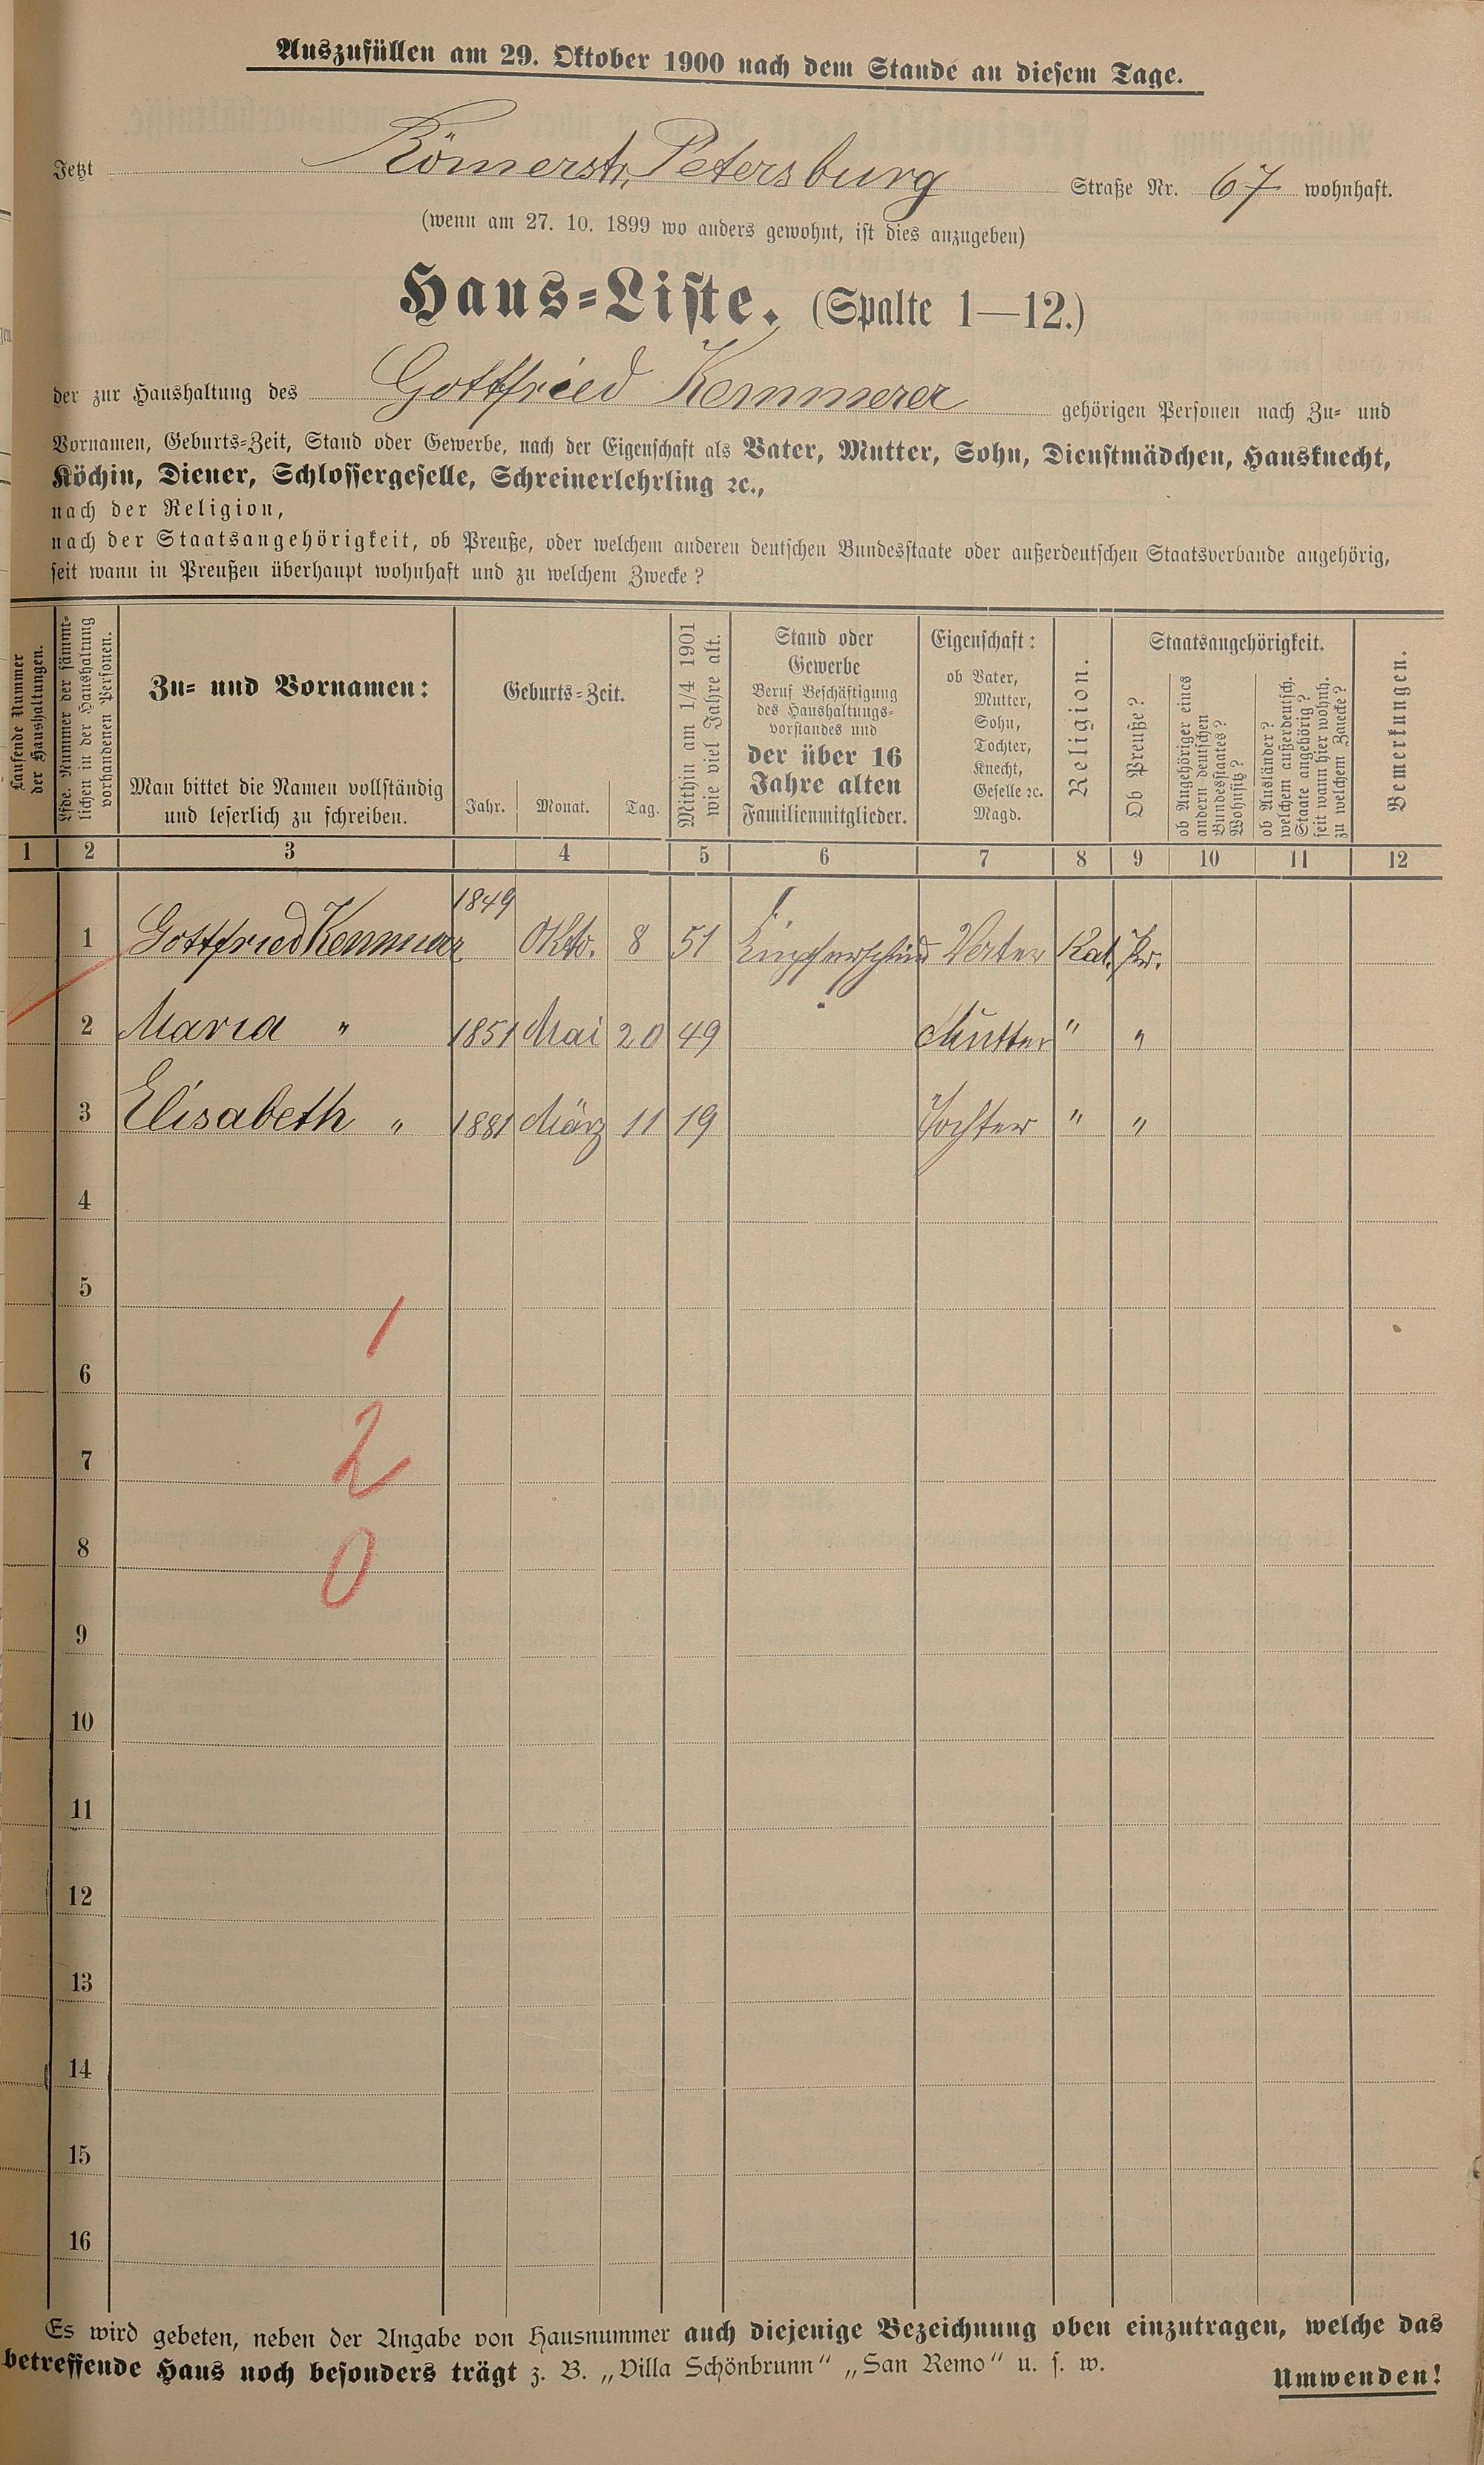 Auszufüllen am 29. Oktober 1900 nach dem Stande an diesem Tage.
Jetzt Römerstr. Petersburg Straße Nr. 67 wohnhaft.
(wenn am 27. 10. 1899 wo anders gewohnt, ist dies anzugeben)
Haus-Liste. (Spalte 1—12.)
der zur Haushaltung des Gottfried Kemmerer gehörigen Personen nach Zu- und
Vornamen, Geburts-Zeit, Stand oder Gewerbe, nach der Eigenschaft als Vater, Mutter, Sohn, Dienstmädchen, Hausknecht,
Köchin, Diener, Schlossergeselle, Schreinerlehrling ꝛc.,
nach der Religion,
nach der Staatsangehörigkeit, ob Preuße, oder welchem anderen deutschen Bundesstaate oder außerdeutschen Staatsverbande angehörig,
seit wann in Preußen überhaupt wohnhaft und zu welchem Zwecke?
Laufende Nummer
der Haushaltungen.
Lfde. Nummer der sämmt-
lichen in der Haushaltung
vorhandenen Personen.
Zu- und Vornamen:
Man bittet die Namen vollständig
und leserlich zu schreiben.
Geburts-Zeit.
Jahr. Monat. Tag.
Mithin am 1/4 1901
wie viel Jahre alt.
Stand oder
Gewerbe
Beruf Beschäftigung
des Haushaltungs-
vorstandes und
der über 16
Jahre alten
Familienmitglieder.
Eigenschaft:
ob Vater,
Mutter,
Sohn,
Tochter,
Knecht,
Geselle ꝛc.
Magd.
Religion.
Staatsangehörigkeit.
Ob Preuße?
ob Angehöriger eines
andern deutschen
Bundesstaates?
Wohnsitz?
ob Ausländer?
welchem außerdeutsch.
Staate angehörig?
seit wann hier wohnh.
zu welchem Zwecke?
Bemerkungen.
1 2 3 4 5 6 7 8 9 10 11 12
1 Gottfried Kemmerer 1849 Okto. 8 51 Kupferschmid Vater Kat. Pr.
2 Maria " 1851 Mai 20 49 Mutter " "
3 Elisabeth " 1881 März 11 19 Tochter " "
4
5
1
6
2
7
8
0
9
10
11
12
13
14
15
16
Es wird gebeten, neben der Angabe von Hausnummer auch diejenige Bezeichnung oben einzutragen, welche das
betreffende Haus noch besonders trägt z. B. „Villa Schönbrunn“ „San Remo“ u. s. w.
Umwenden!